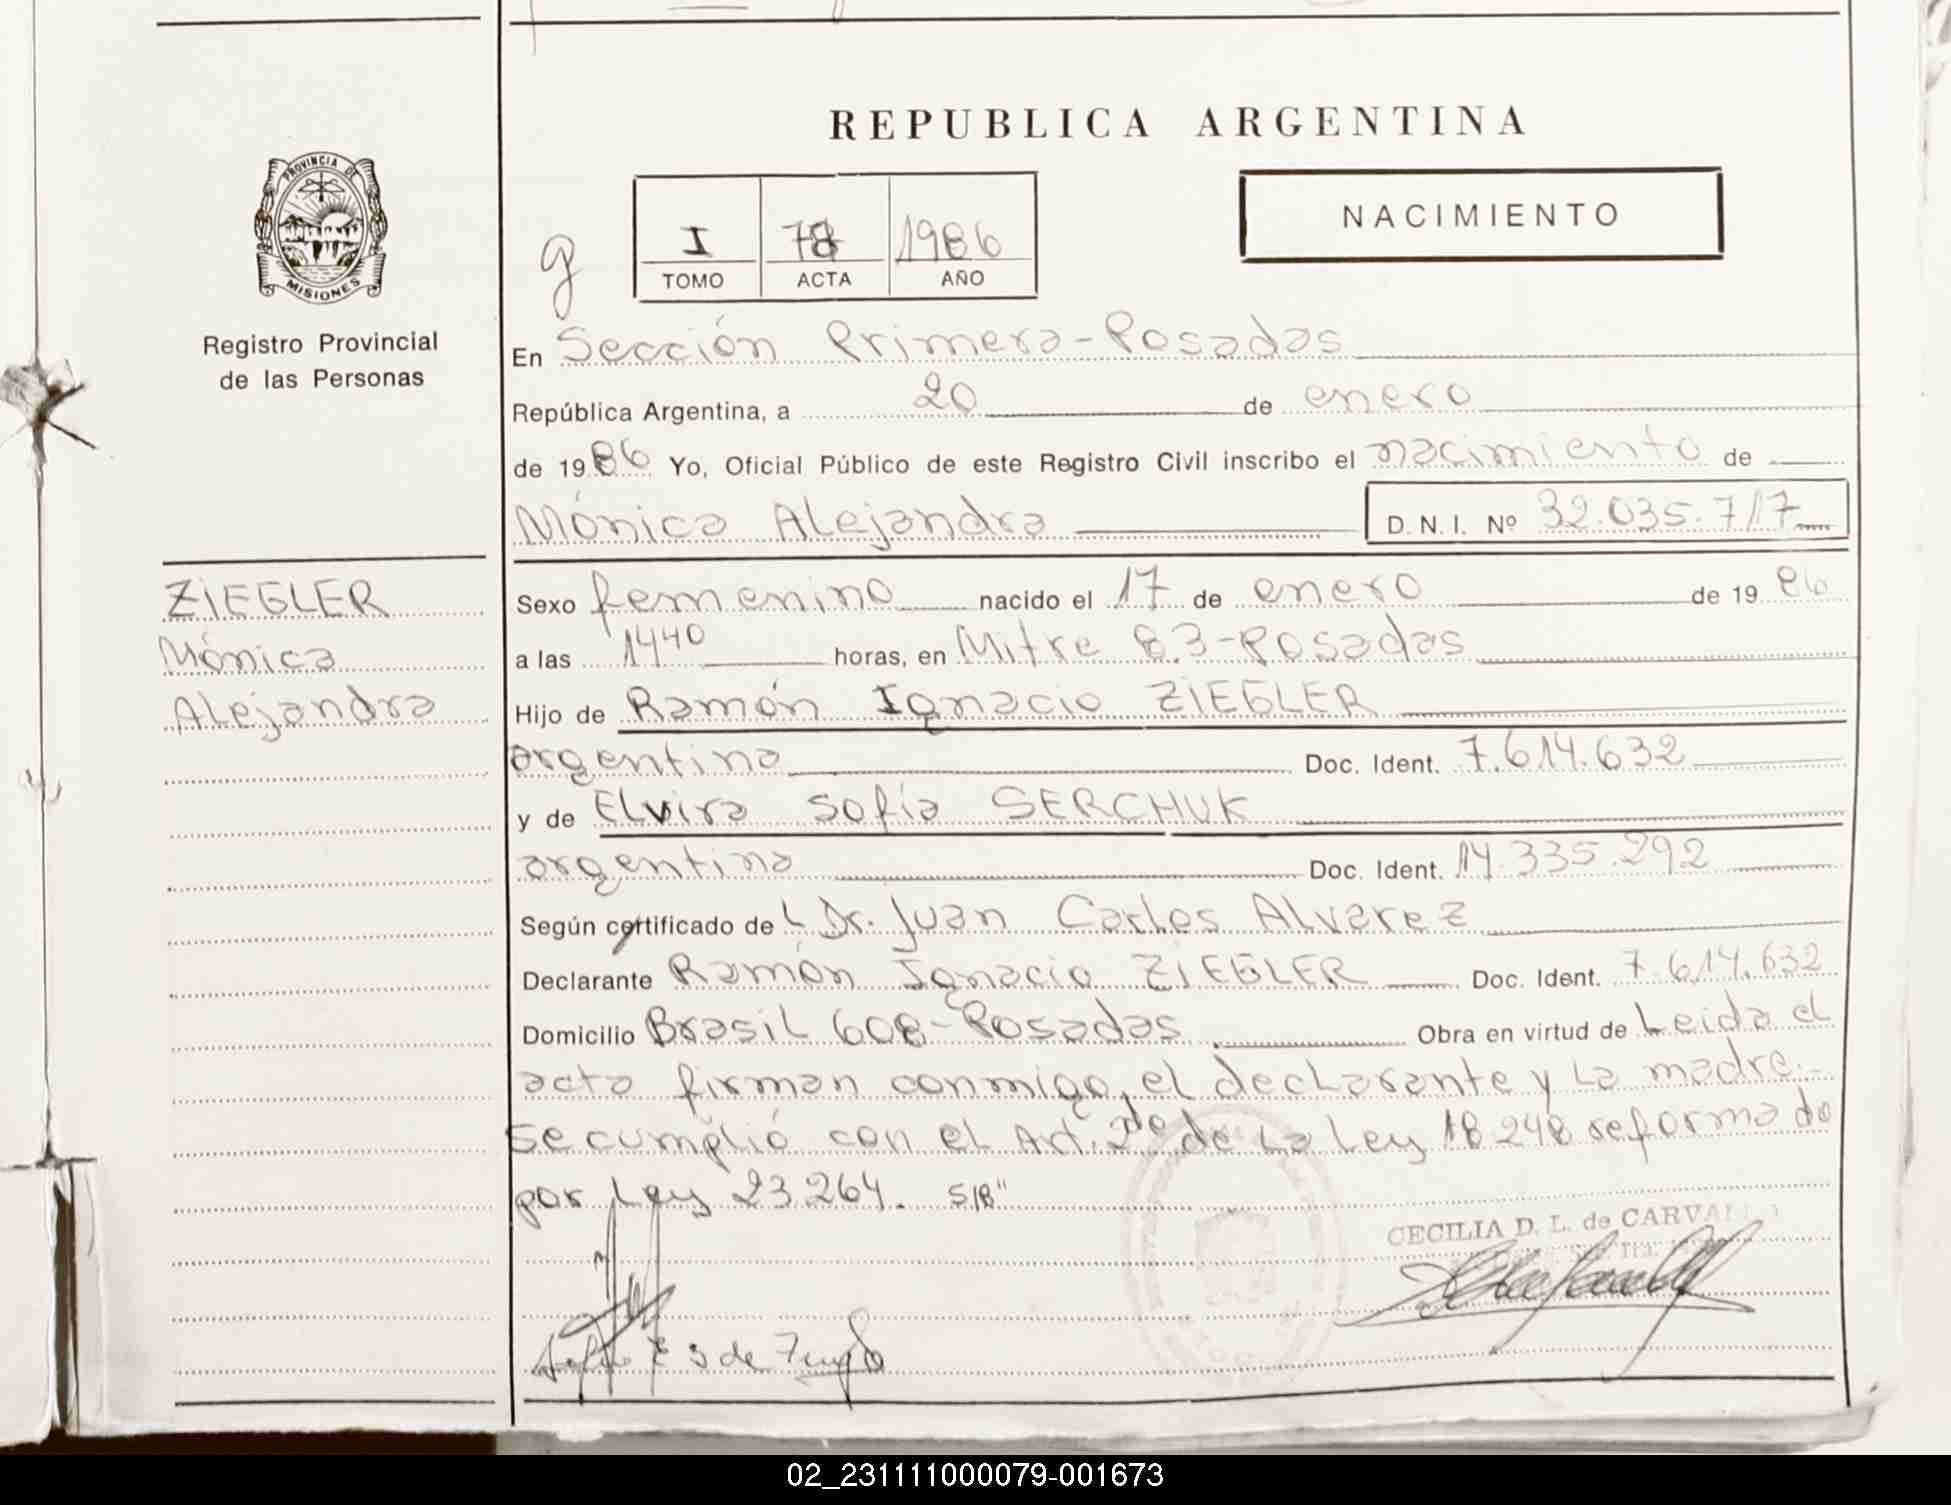 REPUBLICA ARGENTINA
PROVINCIA DE
MISIONES
Registro Provincial
de las Personas
NACIMIENTO
g
I 78 1986
TOMO ACTA AÑO
En Sección Primera-Posadas
República Argentina, a 20 de enero
de 1986 Yo, Oficial Público de este Registro Civil inscribo el nacimiento de
Mónica Alejandra D.N.I. Nº 32.035.717
ZIEGLER
Mónica
Alejandra
Sexo femenino nacido el 17 de enero de 1986
a las 1440 horas, en Mitre 83-Posadas
Hijo de Ramón Ignacio ZIEGLER
argentino Doc. Ident. 7.614.632
y de Elvira Sofía SERCHUK
argentina Doc. Ident. 14.335.292
Según certificado de L Dr. Juan Carlos Alvarez
Declarante Ramón Ignacio ZIEGLER Doc. Ident. 7.614.632
Domicilio Brasil 608-Posadas Obra en virtud de Leida el
acta firman conmigo, el declarante y la madre.-
Se cumplió con el Art. 2do de la Ley 18248 reformado
por Ley 23.264. S/B"
CECILIA D. L. de CARVALLO
02_231111000079-001673